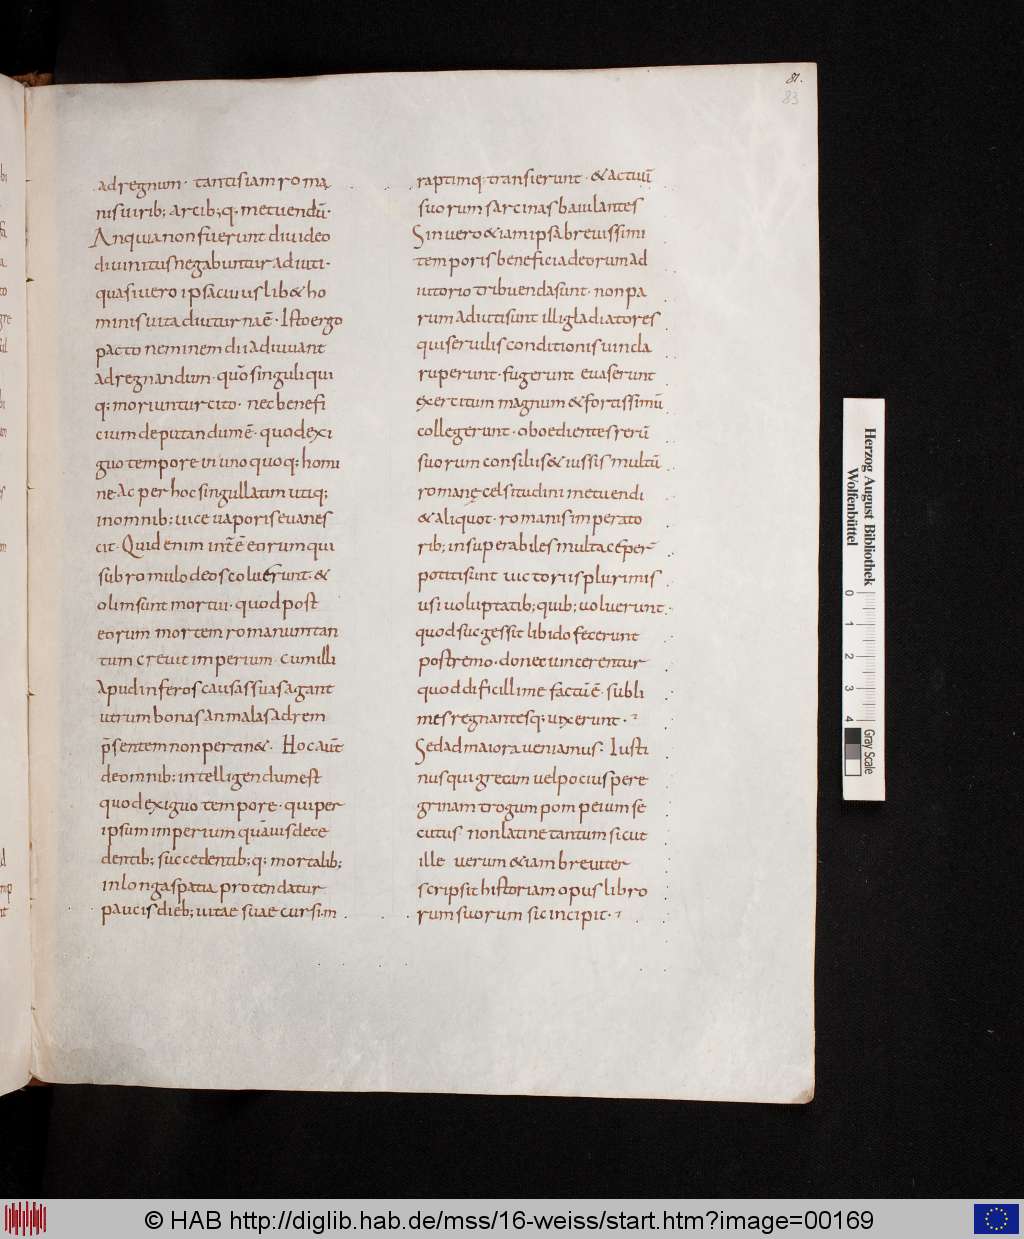 81.
83
adregnum· tantis iam romę
nis uirib; artib;q· metuendū·
An quia non fuerunt diu ideo
diuinitus negabuntur adiuti·
quasi uero ipsa cuius lib& ho
minis uita diuturna ē· Isto ergo
pacto neminem dii adiuuant
ad regnandum· quō singuli qui
q; moriuntur cito· nec benefi
cium deputandum ē· quod exi
guo tempore in uno quoq; homi
ne Ac per hoc singullatim utiq;
in omnib; uice uaporis euanes
cit· Quid enim inte͂ē eorum qui
sub romulo deos coluerunt· &
olim sunt mortui· quod post
eorum mortem romanum tan
tum creuit imperium· cum illi
Apud inferos causas suas agant
uerum bonas an malas ad rem
p̄sentem non pertin&· Hoc aut̄
de omnib; intelligendum est
quod exiguo tempore· qui per
ipsum imperium quāuis dece
dentib; succedentib;q; mortalib;
in longa spatia protendatur
paucis dieb; uitae suae cursim
raptimq; transierunt· & actuū
suorum sarcinas baiulantes
Sin uero & iam ipsa breuissimi
temporis beneficia deorum ad
iutorio tribuenda sunt· non pa
rum adiuti sunt illi gladiatores
qui seruilis conditionis uincla
ruperunt· fugerunt euaserunt
exercitum magnum & fortissimū
collegerunt· oboedientes rerū
suorum consiliis & iussis multū
romanę celsitudini metuendi
& aliquot· romanis imperato
rib; insuperabiles multa cęper̄
potiti sunt uictoriis plurimis
usi uoluptatib; quib; uoluerunt·
quod suggessit libido fecerunt
postremo· donec uincerentur
quod difficillime factū ē· subli
mes regnantesq; uixerunt·
Sed ad maiora ueniamus: Iusti
nus qui grecam uel pocius pere
grinam trogum pompeium se
cutus non latine tantum sicut
ille uerum & iam breuiter
scripsit historiam opus libro
rum suorum sic incipit·
Herzog August Bibliothek
Wolfenbüttel
0 1 2 3 4
Gray Scale
© HAB http://diglib.hab.de/mss/16-weiss/start.htm?image=00169